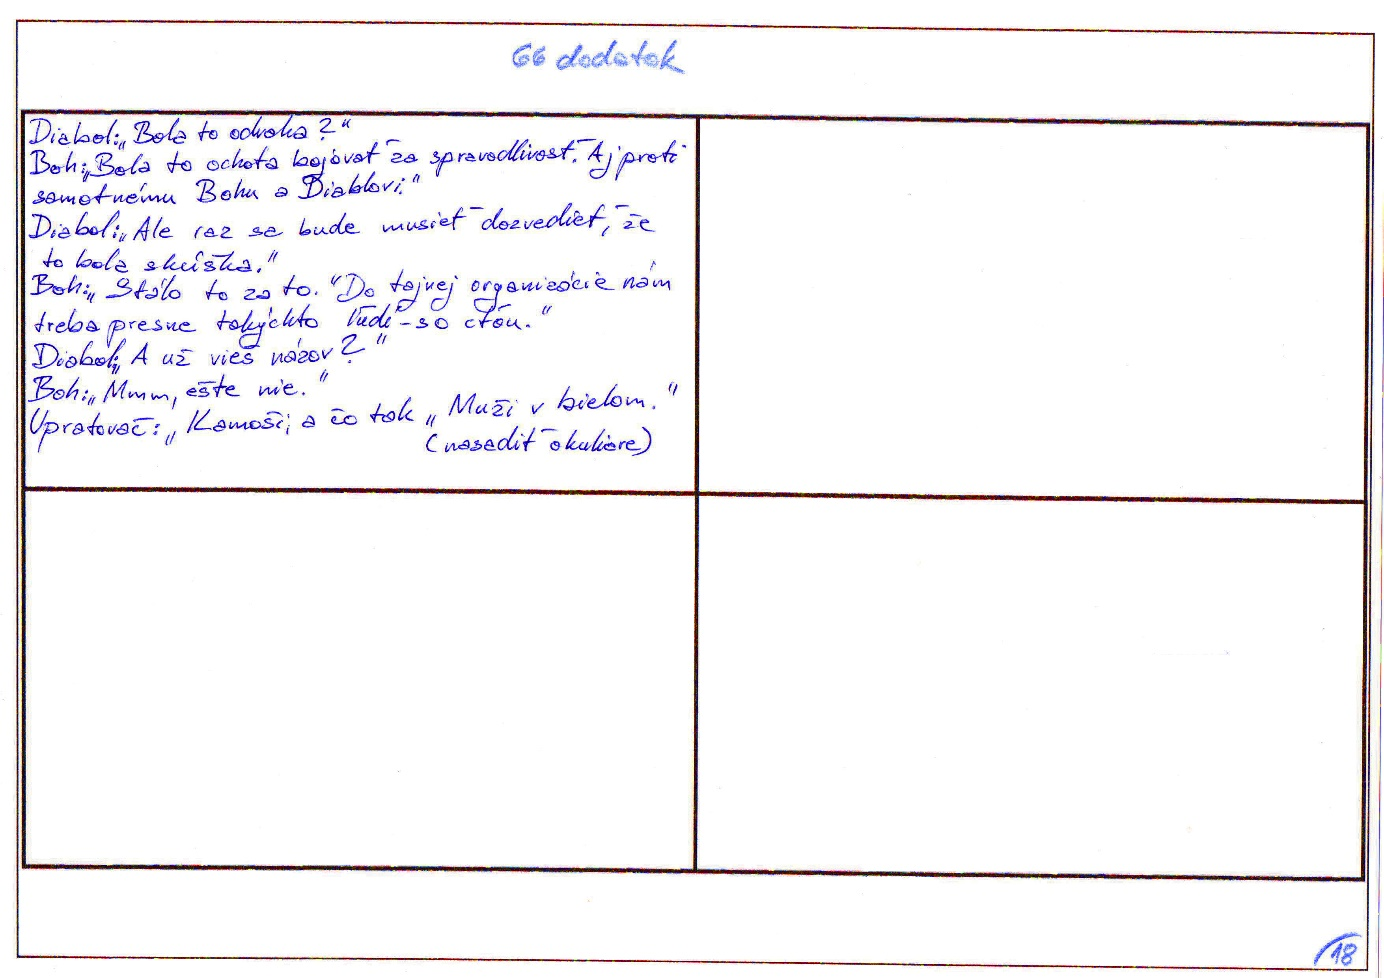 66 dodatok
Diabol: „Bola to odvaha?"
Boh: „Bola to ochota bojovať za spravodlivosť. Aj proti
samotnému Bohu a Diablovi."
Diabol: „Ale raz sa bude musieť dozvedieť, že
to bola skúška."
Boh: „Stálo to za to." Do tajnej organizácie nám
treba presne takýchto ľudí - so cťou."
Diabol: „A už vieš názov?"
Boh: „Mmm, ešte nie."
Upratovač: „Kamoši, a čo tak „Muži v bielom."
(nasadiť okuliare)
18